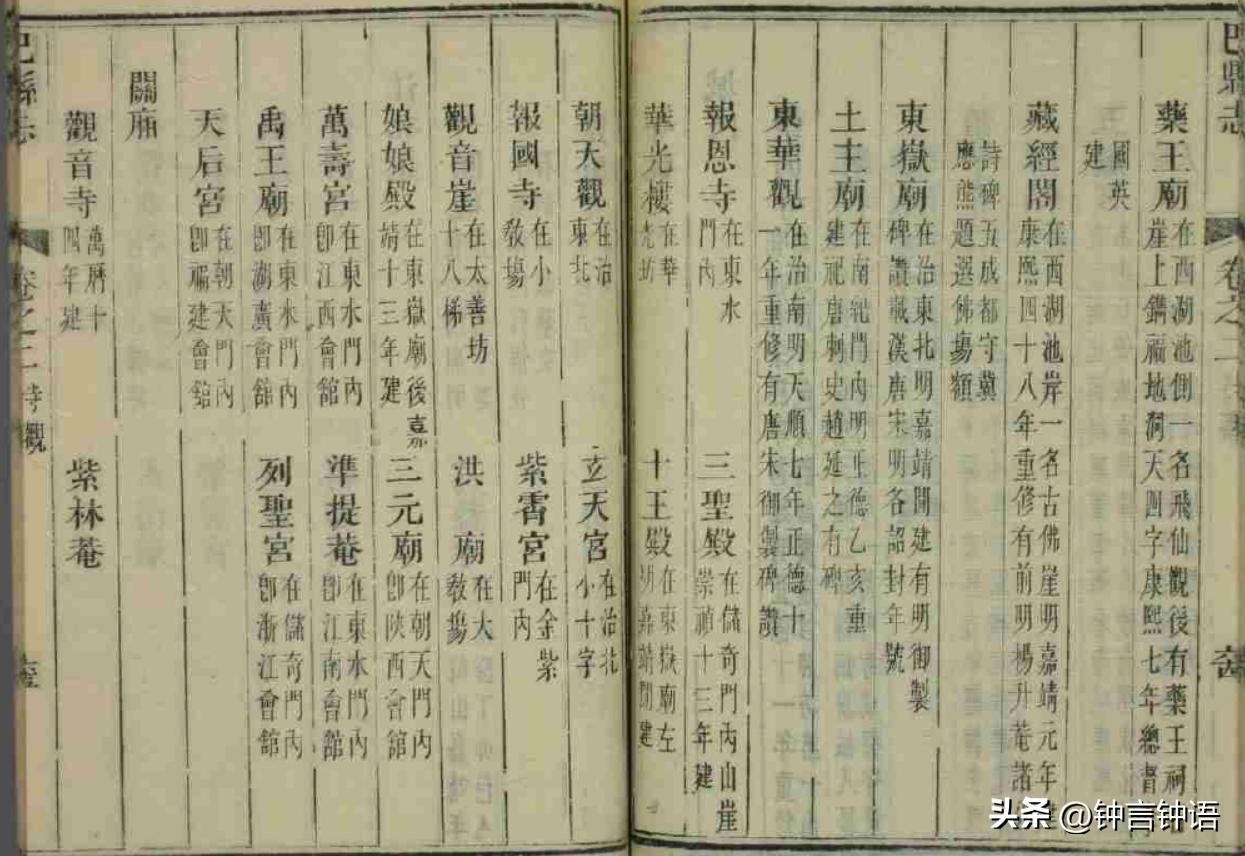 巴縣志
卷之二
藥王廟 在西湖池側一名飛仙觀後有藥王祠
崖上鐫福地洞天四字康熙七年總督
國英
建
藏經閣 在西湖池岸一名古佛崖明嘉靖元年建
康熙四十八年重修有前明楊升菴諸
詩碑五成都守冀
應熊題選佛場額
東嶽廟 在治東北明嘉靖間建有明御製
碑讚載漢唐宋明各詔封年號
土主廟 在南紀門內明正德乙亥重
建祀唐刺史趙延之有碑
東華觀 在治南明天順七年正德十
一年重修有唐宋御製碑讚
報恩寺 在東水
門內
三聖殿 在儲奇門內山崖
崇禎十三年建
華光樓 在華
光坊
十王殿 在東嶽廟左
明嘉靖間建
朝天觀 在治
東北
玄天宮 在治北
小十字
報國寺 在小
教場
紫霄宮 在金紫
門內
觀音崖 在太善坊
十八梯
洪廟 在大
教場
娘娘殿 在東嶽廟後嘉
靖十三年建
三元廟 在朝天門內
卽陝西會館
萬壽宮 在東水門內
卽江西會館
準提菴 在東水門內
卽江南會館
禹王廟 在東水門內
卽湖廣會館
列聖宮 在儲奇門內
卽浙江會館
天后宮 在朝天門內
卽福建會館
關廂
觀音寺 萬曆十
四年建
紫林菴
巴縣志
卷之二 寺觀
头条 @钟言钟语